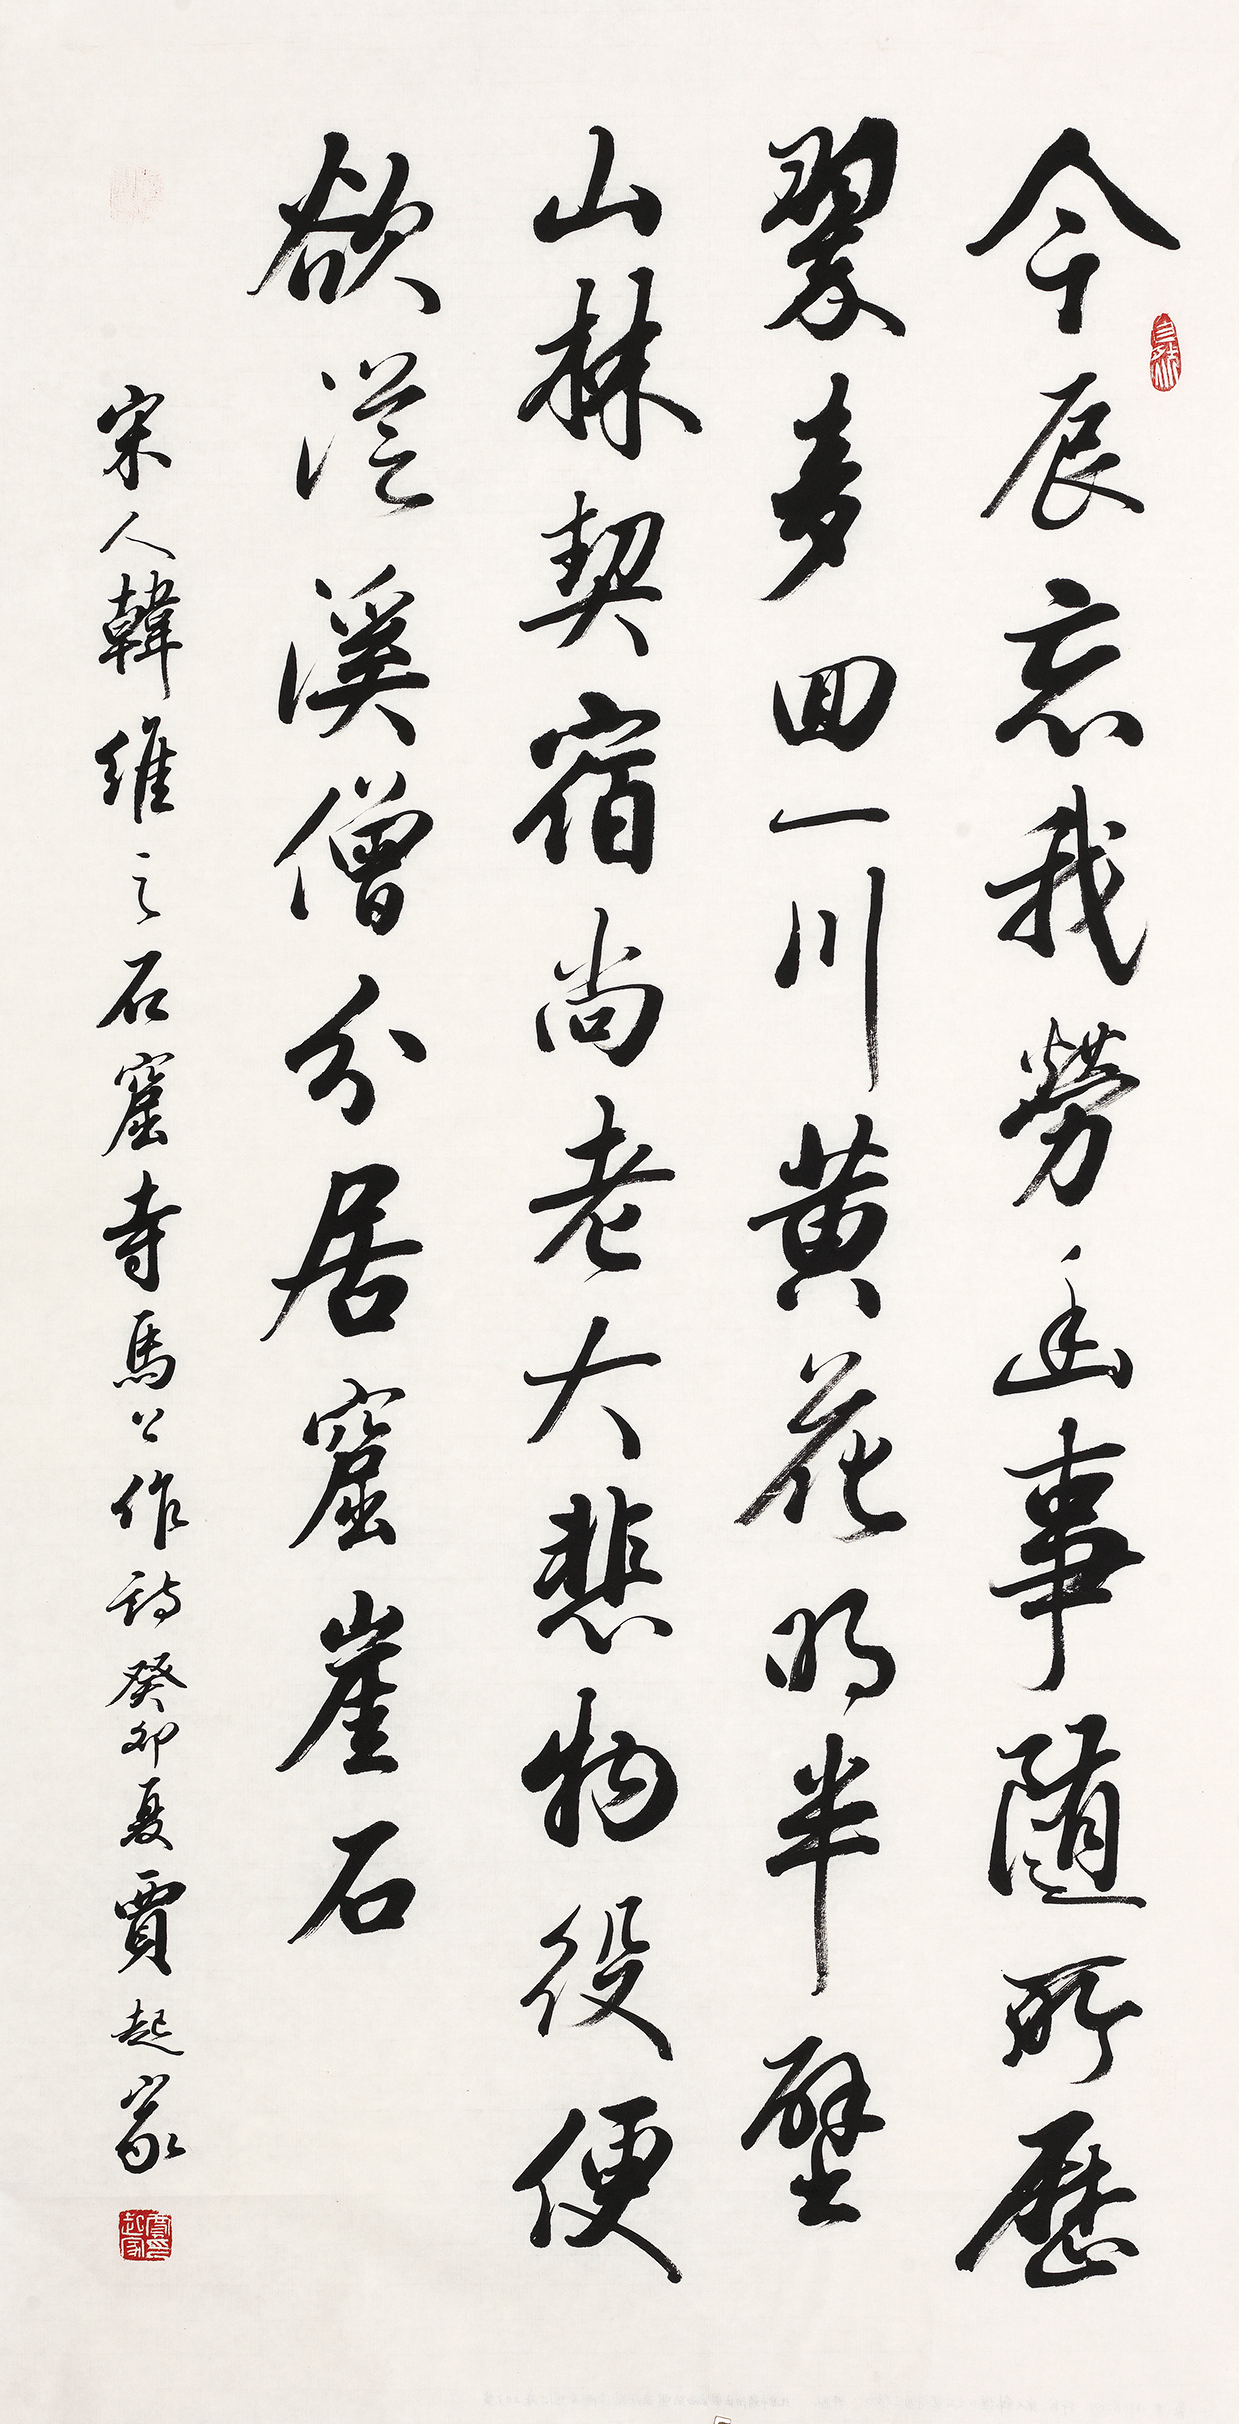 今辰忘我劳幽事随所历
翠多回一川黄花明半壁
山林契宿尚老大悲物役便
欲从溪僧分居窟崖石
宋人韓維之石窟寺馬上作詩癸卯夏賈起家